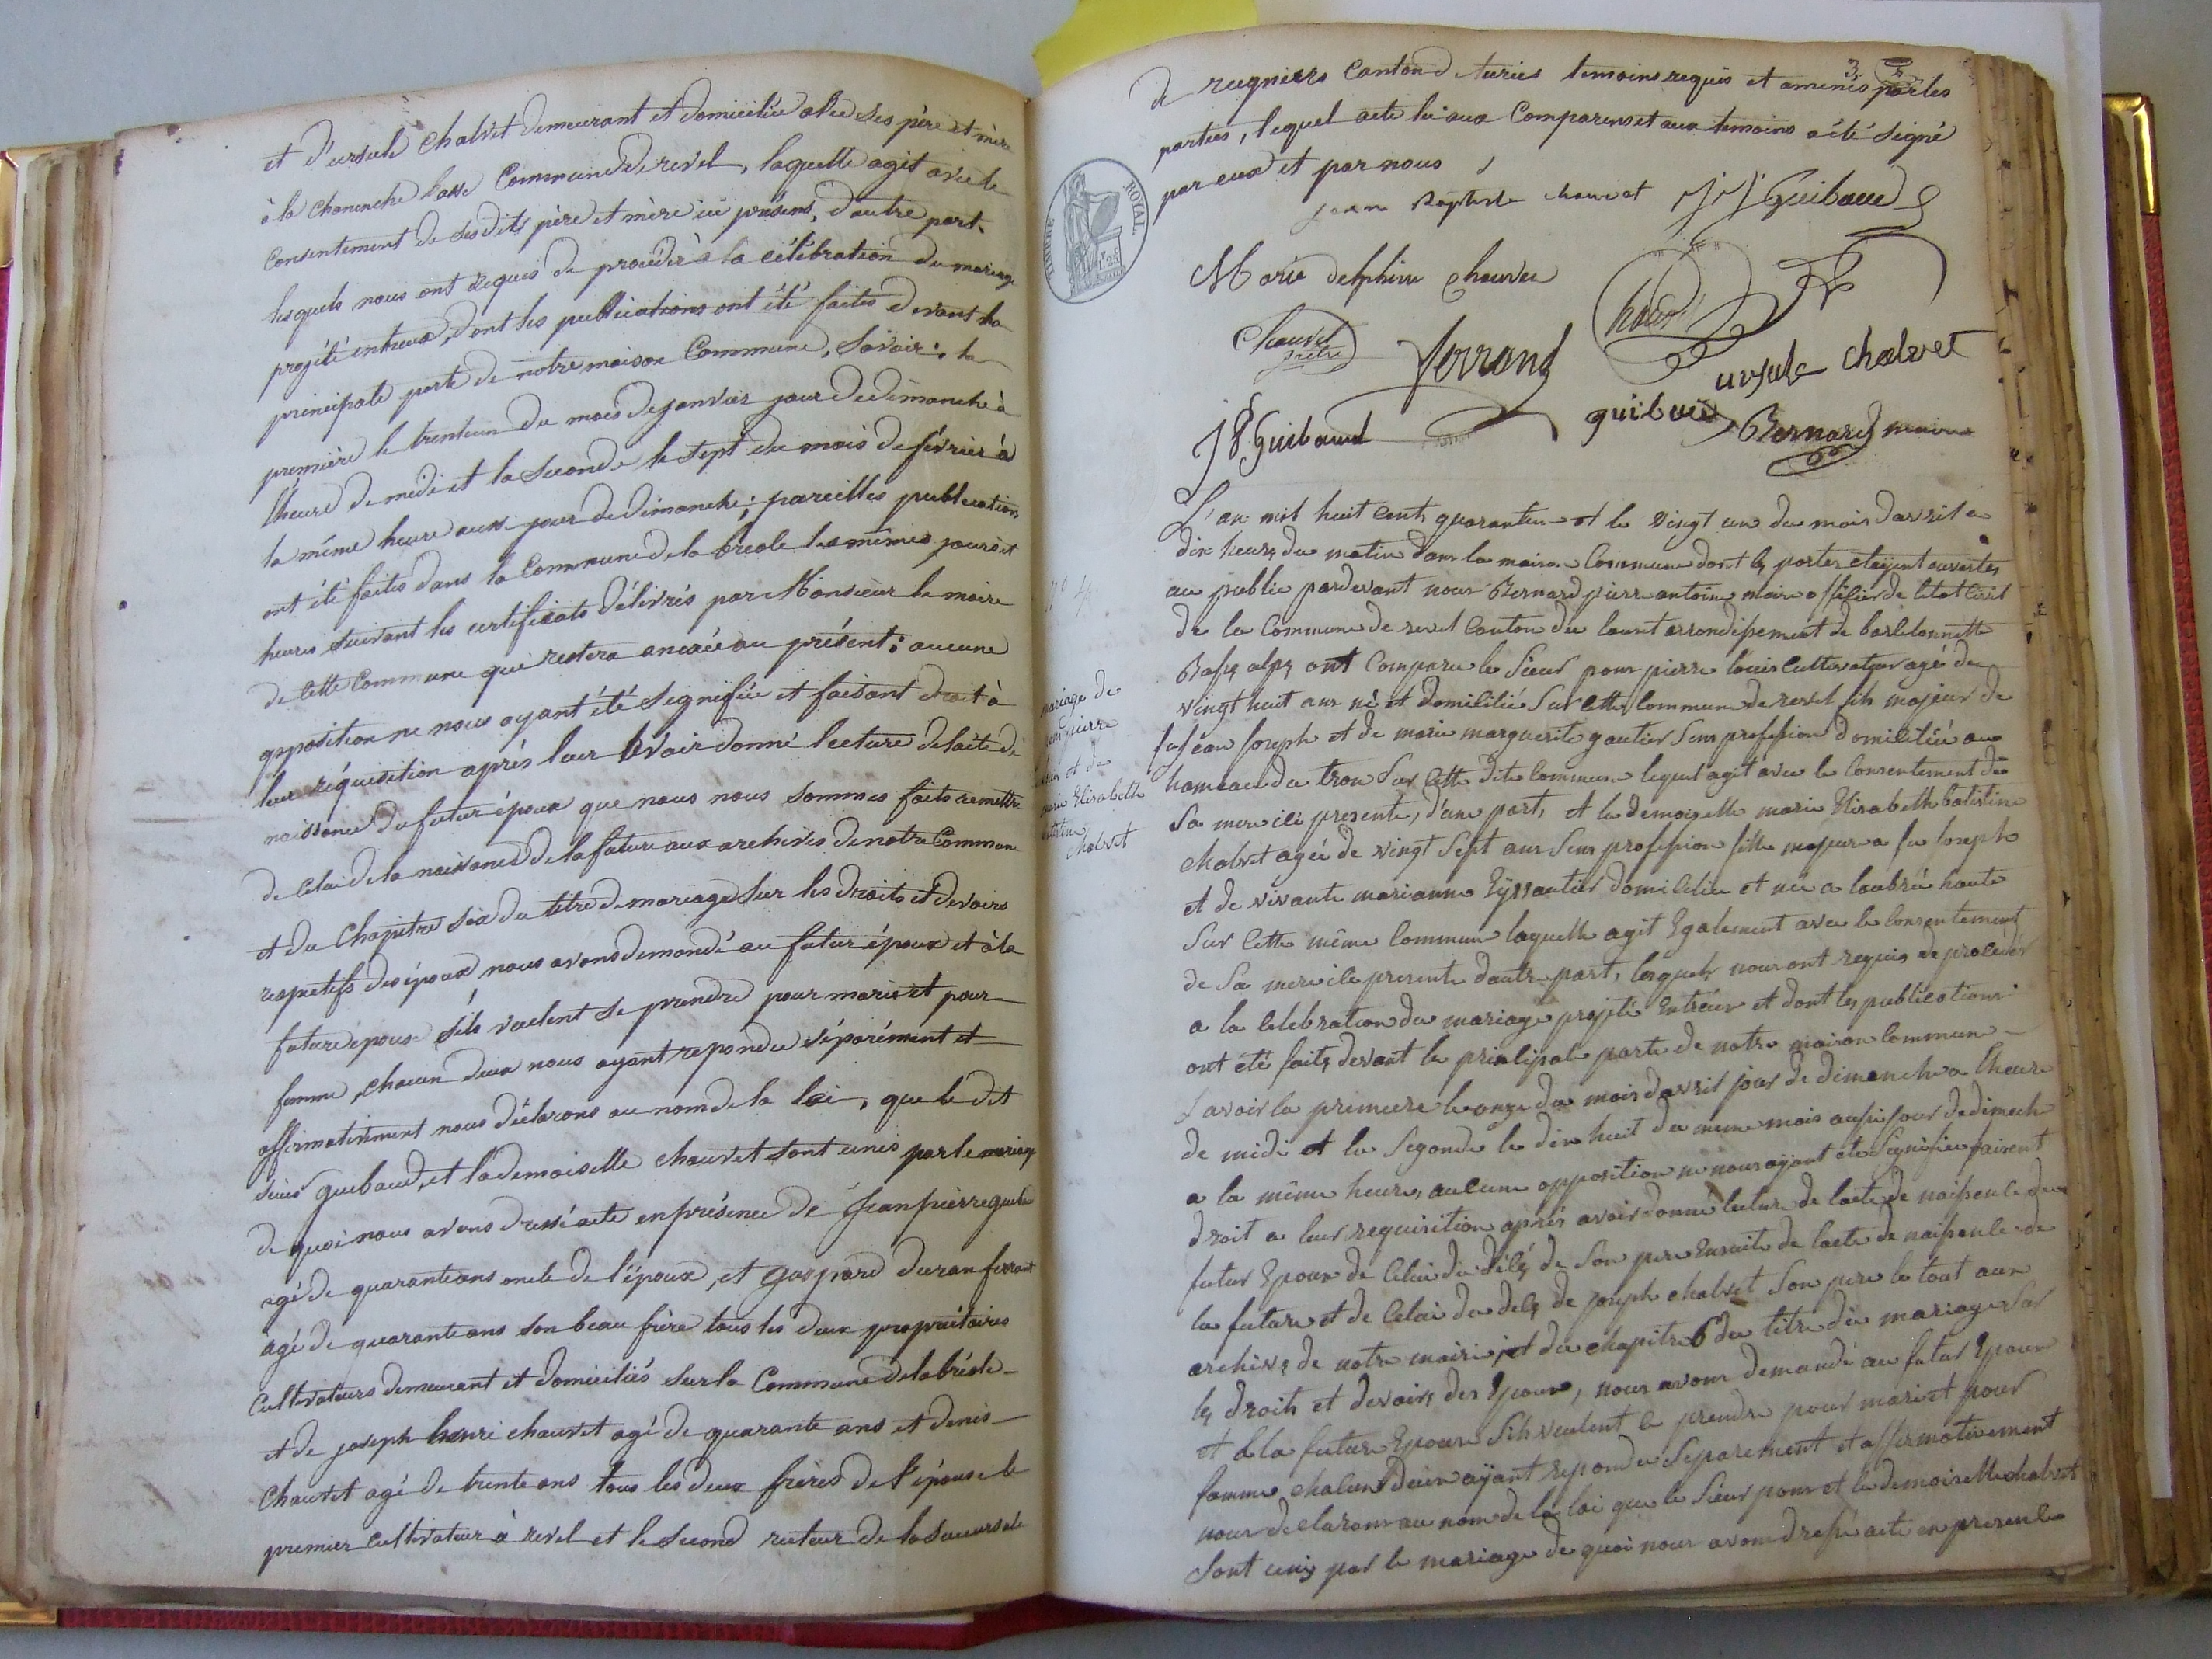 et d'ursule Chalvet demeurant et domiciliée avec ses père et mère
à la Chanenche basse Commune de revel, laquelle agit avec le
Consentement de sesdits père et mère ici présens, d'autre part.
lesquels nous ont requis de procéder à la célébration du mariage
projété entr'eux, dont les publications ont été faites devant la
principale porte de notre maison Commune, Savoir: la
première le trenteun du mois de janvier jour de dimanche à
l'heure de midi et la Seconde le sept du mois de février à
la même heure aussi jour de dimanche; pareilles publications
ont été faites dans la Commune de la bréole les mêmes jours et
heures suivant les certificats délivrés par Monsieur le maire
de cette Commune qui restera anexée au présent: aucune
opposition ne nous ayant été signifiée et faisant droit à
leur réquisition après leur avoir donné lecture de l'acte de
naissance du futur époux que nous nous sommes faits remettre
de celui de la naissance de la future aux archives de notre Commune
et du Chapitre six du titre de mariage sur les droits et devoirs
respectifs des époux, nous avons demandé au futur époux et à la
future épouse s'ils veulent se prendre pour mari et pour
femme, chacun d'eux nous ayant repondu séparément et
affirmativement nous déclarons au nom de la loi, que le dit
sieur guibaud, et la demoiselle chauvet sont unis par le mariage
de quoi nous avons dressé acte en présence de Jean pierre guibau
agé de quarante ans oncle de l'époux, et gaspard duran ferrant
âgé de quarante ans son beau frère tous les deux propriétaires
Cultivateurs demeurant et domiciliés sur la Commune de la bréole
et de joseph henri chauvet agé de quarante ans et denis
Chauvet agé de trente ans tous les deux frères de l'épouse le
premier Cultivateur à revel et le second recteur de la succursale
3
de reyniers Canton de turies temoins requis et amenés par les
parties, lequel acte lu aux Comparens et aux temoins a été signé
par eux et par nous
TIMBRE ROYAL
jean Baptiste chauvet J J Guibaud
Marie delphine Chauvet
Chauvet
prêtre
ferrand
ursule chalvet
J P Guibaud
guibaud
Bernard maire
L'an mil huit cent quarante et le vingt un du mois d'avril a
dix heures du matin dans la maison Commune dont les portes etoyent ouvertes
au public pardevant nous Bernard pierre antoine maire officier de l'etat civil
de la Commune de revel Canton du lauzet arrondissement de barcelonnette
Basses alpes ont Comparu le Sieur pons pierre louis Cultivateur agé de
vingt huit ans né et domicilié Sur cette Commune de revel fils majeur de
feu jean Joseph et de marie marguerite gautier Sans profession domiciliée au
hameau du trou Sur Cette dite Commune lequel agit avec le Consentement de
Sa mere ici presente, d'une part, et la demoiselle marie Elisabeth batistine
Chalvet agée de vingt Sept ans Sans profession fille majeure a feu Joseph
et de vivante marianne Eyssautier domiciliée et née a laubrée haute
Sur Cette même Commune laquelle agit Egalement avec le Consentement
de Sa mere ici presente d'autre part, lesquels nous ont requis de proceder
a la Celebration du mariage projeté Entr'eux et dont les publications
ont été faites devant la principale porte de notre maison Commune
Savoir la premiere le onze du mois d'avril jour de dimanche a l'heure
de midi et la Segonde le dix huit du meme mois aussi jour de dimache
a la même heure, aucune opposition ne nous ayant été Signifiée fairent
droit a leur requisition aprés avoir donné lecture de l'acte de naissence du
futur Epoux de Celui du déces de Son pere Ensuite de l'acte de naissence de
la future et de Celui du deces de joseph chalvet Son pere le tout aux
archives de notre mairie, et du chapitre 6 du titre du mariage Sur
les droits et devoirs des Epoux, nous avons demandé au futur Epoux
et a la future Epouse S'ils veulent le prendre pour mari et pour
femme chacun d'eux ayant repondu Separement et affirmativement
nous declarons au nom de la loi que le Sieur pons et la demoiselle chalvet
Sont unis par le mariage de quoi nous avons dressé acte en presence
n° 4
mariage de
pons pierre
louis et de
marie Elisabeth
batistine
Chalvet